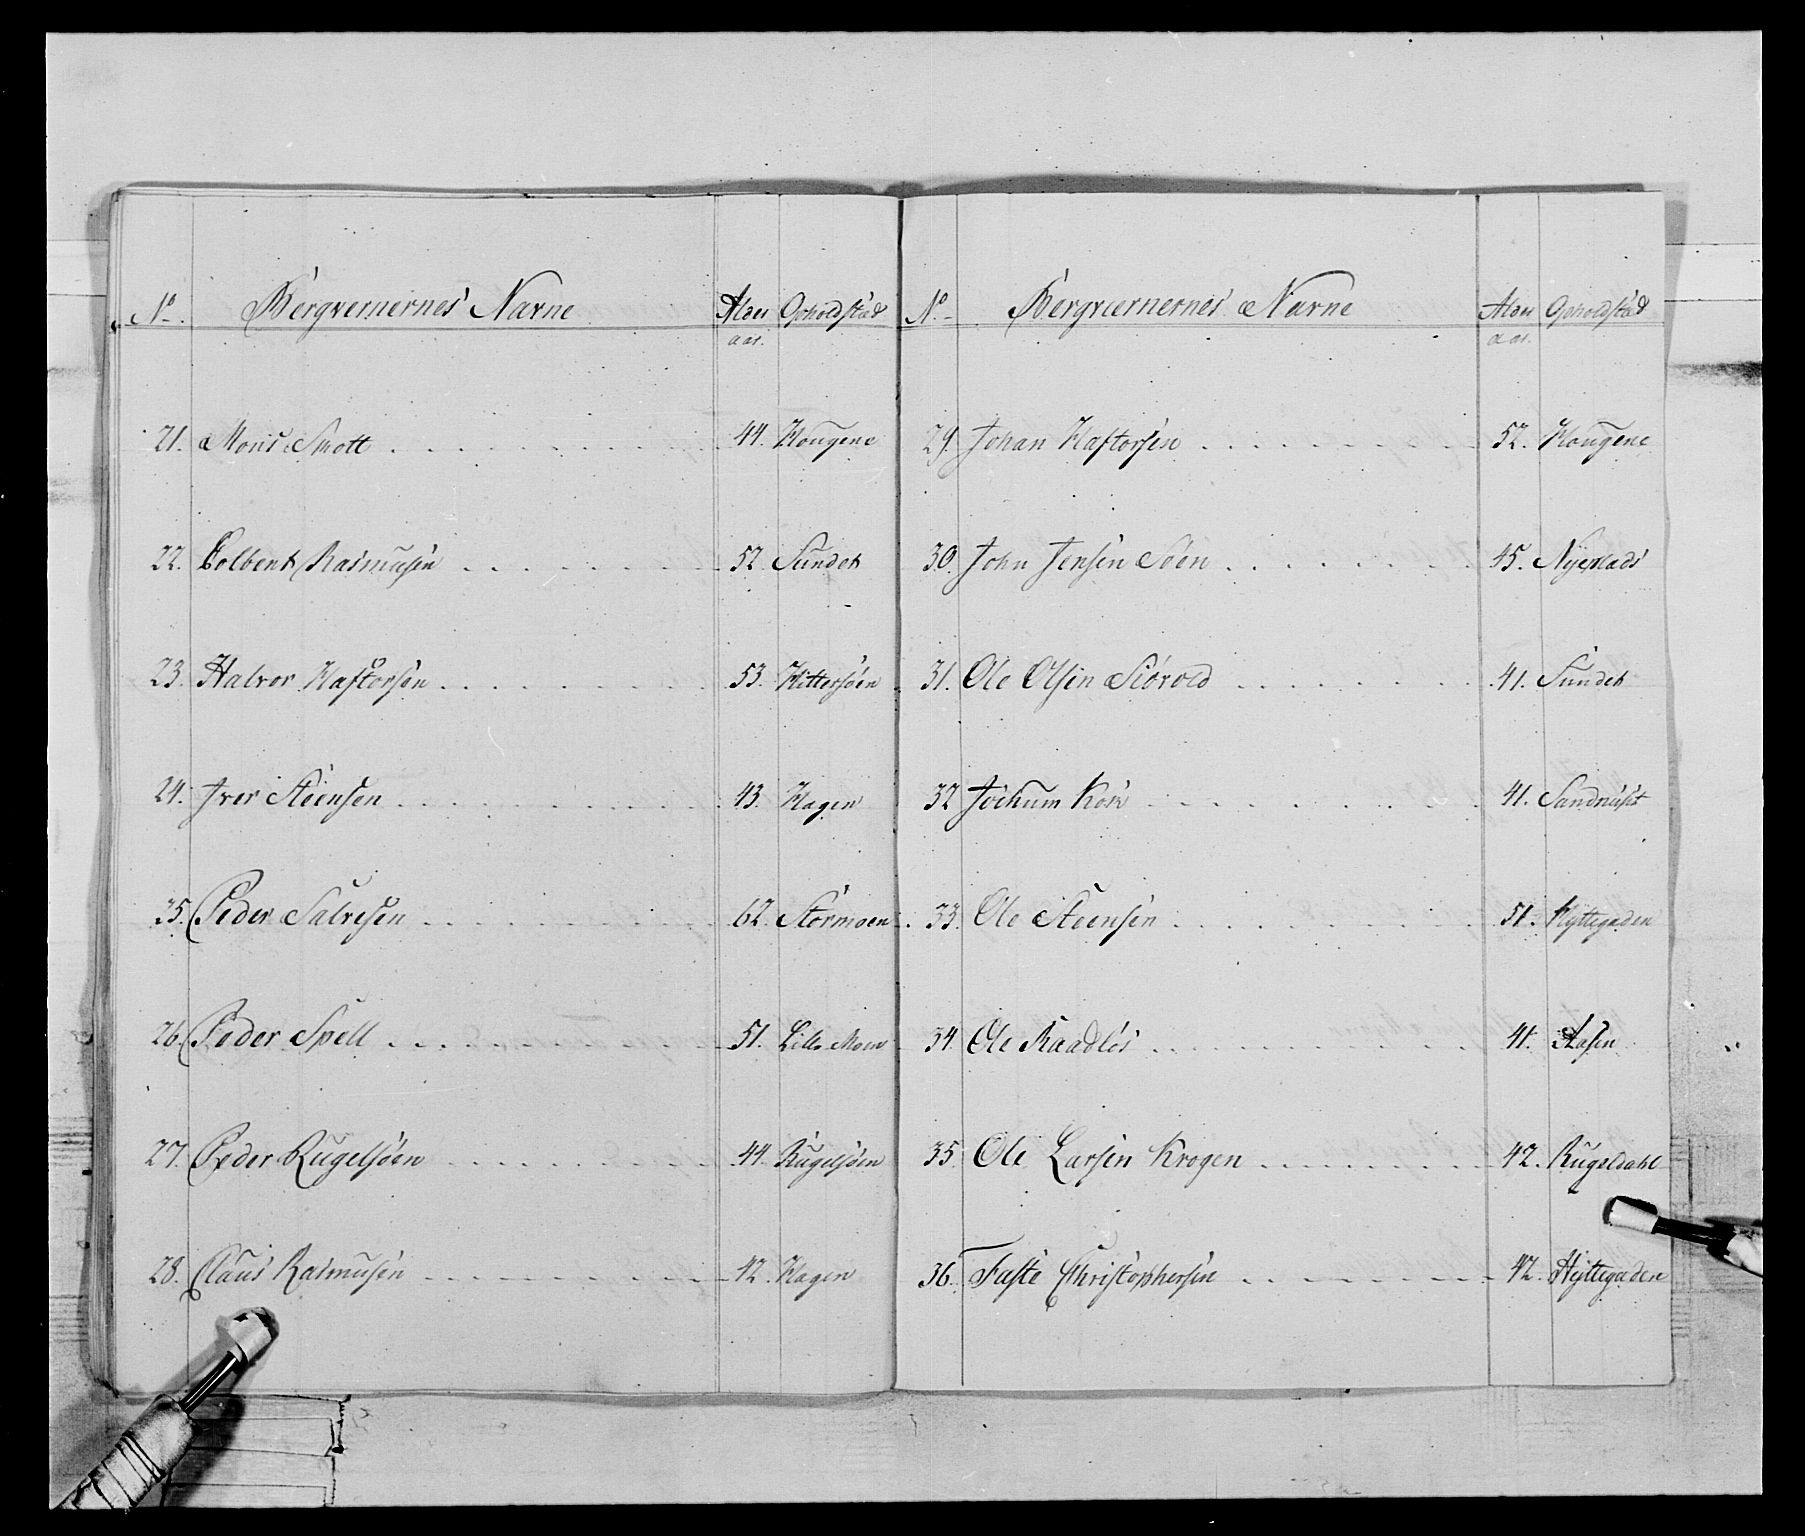 No. Bergvernernes Navne Alder Opholdstæd
aar.
21. Mons Smott 44. Hougene
22. Colbent Rasmusen 52. Sundet
23. Halvor Haftorsen 53. Hittersöen
24. Iver Steensen 43. Hagen
25. Peder Salvesen 62. Stormoen
26. Peder Spell 51. Lille Moen
27. Peder Rugelsöen 44. Rugelsöen
28. Claus Rasmusen 42. Hagen
No. Bergværnernes Navne Alder Opholdstæd
aar.
29. Johan Haftorsen 52. Hougene
30. John Jensen Soen 45. Nyeplads
31. Ole Olsen Siövold 41. Sundet
32 Jochum Kok 41. Sandnæset
33. Ole Steensen 51. Hyttegaden
34. Ole Raadlös 41. Aasen
35. Ole Larsen Krogen 42. Rugeldahl
36. Faste Christophersen 42. Hyttegaden